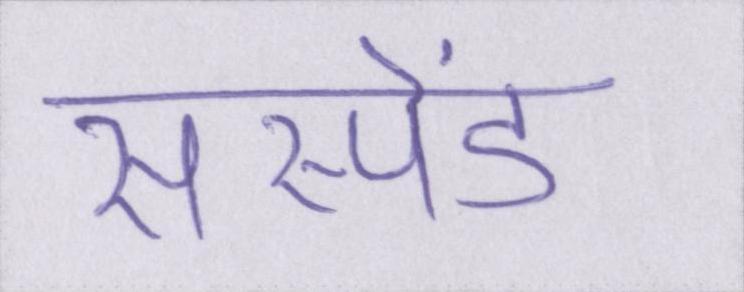 सस्पेंड